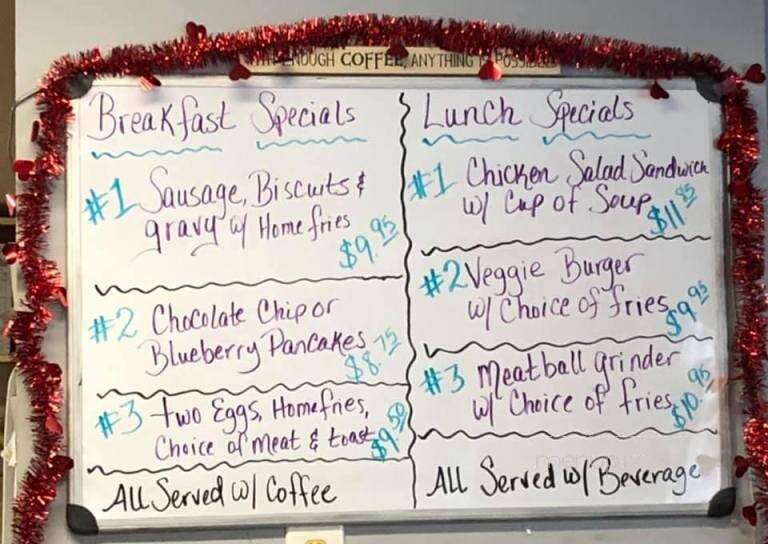 WITH ENOUGH COFFEE, ANYTHING IS POSSIBLE
Breakfast Specials
#1 Sausage, Biscuits &
gravy w/ Home fries
$9.95
#2 Chocolate Chip or
Blueberry Pancakes
$8.75
#3 two Eggs, Homefries,
Choice of Meat & toast
$9.50
All Served w/ Coffee
Lunch Specials
#1 Chicken Salad Sandwich
w/ Cup of Soup
$11.85
#2 Veggie Burger
w/ Choice of fries
$9.95
#3 Meatball grinder
w/ Choice of fries
$10.95
All Served w/ Beverage